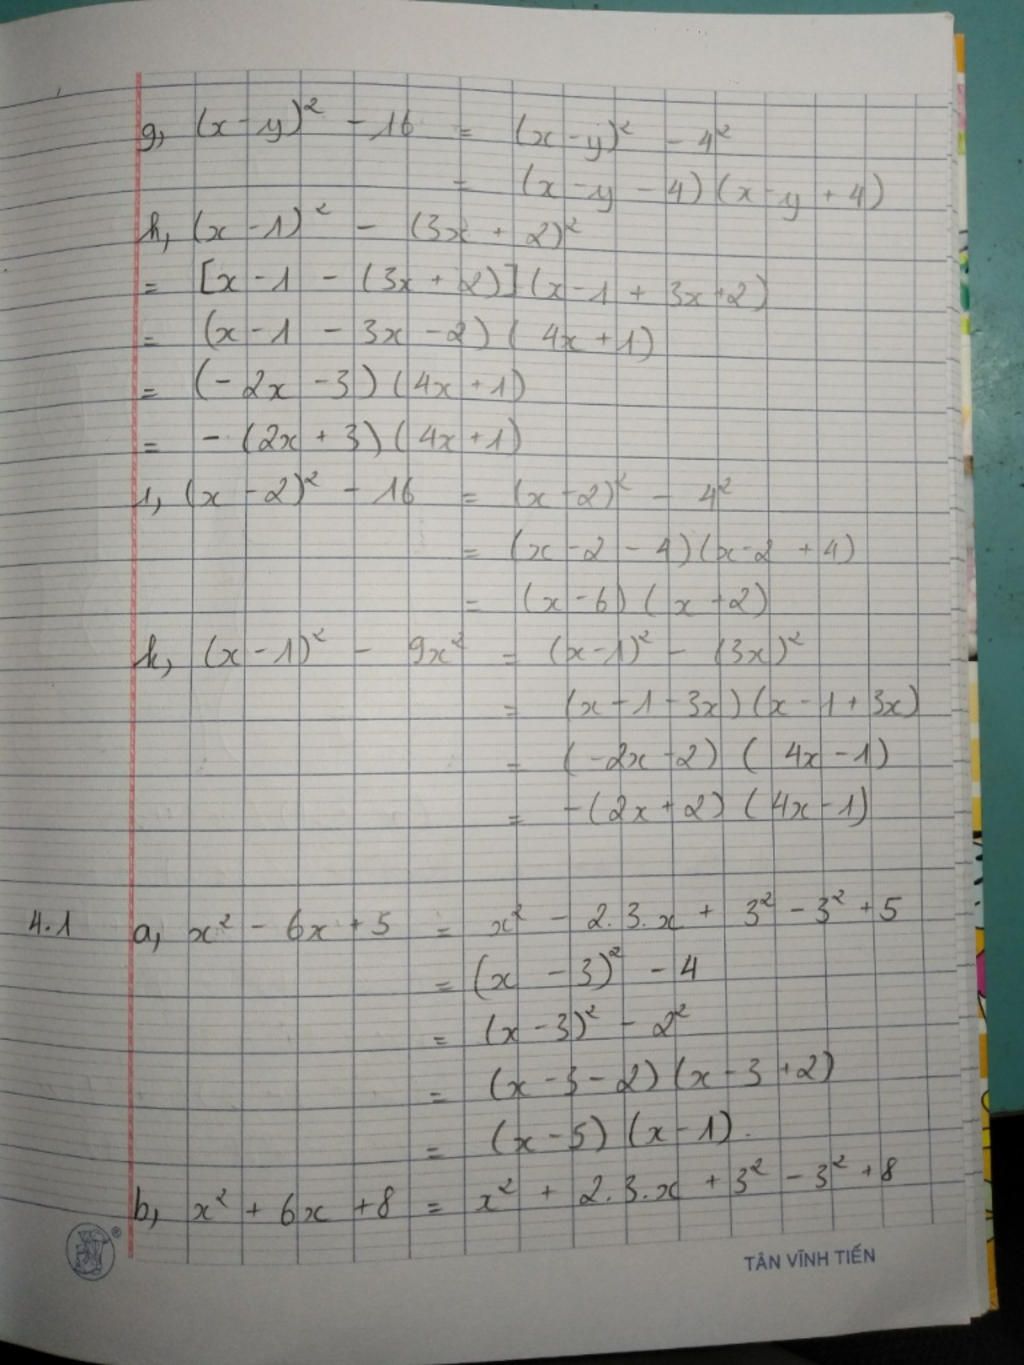 g, (x - y)² - 16 = (x - y)² - 4²
= (x - y - 4)(x - y + 4)
h, (x - 1)² - (3x + 2)²
= [x - 1 - (3x + 2)](x - 1 + 3x + 2)
= (x - 1 - 3x - 2)(4x + 1)
= (- 2x - 3)(4x + 1)
= - (2x + 3)(4x + 1)
i, (x - 2)² - 16 = (x - 2)² - 4²
= (x - 2 - 4)(x - 2 + 4)
= (x - 6)(x + 2)
k, (x - 1)² - 9x² = (x - 1)² - (3x)²
= (x - 1 - 3x)(x - 1 + 3x)
= (-2x - 2)(4x - 1)
= -(2x + 2)(4x - 1)
4.1 a, x² - 6x + 5 = x² - 2.3.x + 3² - 3² + 5
= (x - 3)² - 4
= (x - 3)² - 2²
= (x - 3 - 2)(x - 3 + 2)
= (x - 5)(x - 1).
b, x² + 6x + 8 = x² + 2.3.x + 3² - 3² + 8
®
TÂN VĨNH TIẾN